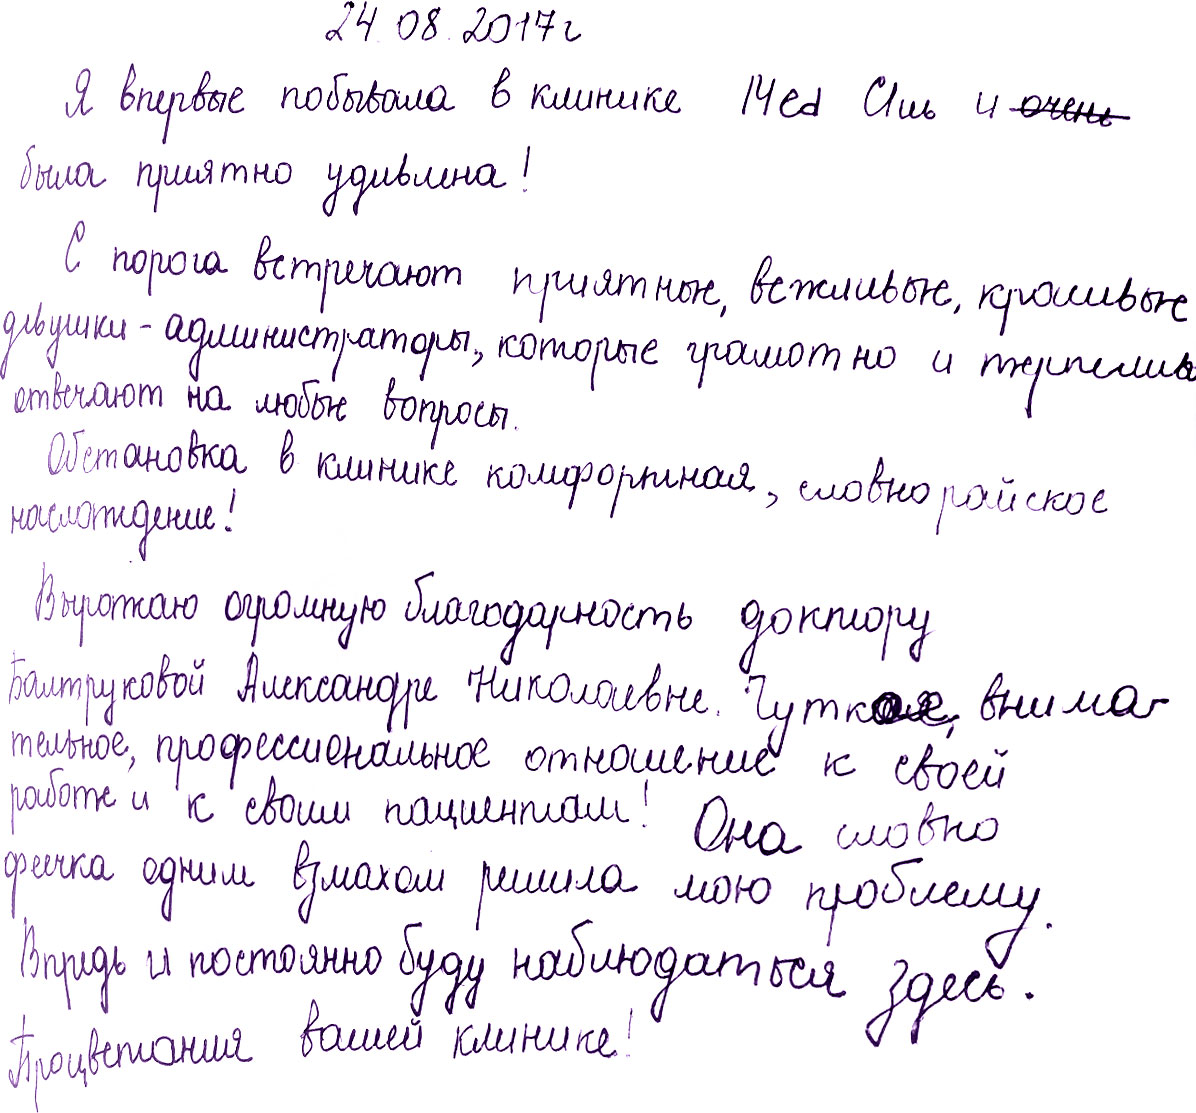 24.08.2017г
Я впервые побывала в клинике Med и очень
была приятно удивлена!
С порога встречают приятные, вежливые, красивые
девушки-администраторы, которые грамотно и терпелив
отвечают на любые вопросы.
Обстановка в клинике комфортная, словно райское
наслаждение!
Выражаю огромную благодарность доктору
Балтруковой Александре Николаевне. Чуткое, внима-
тельное, профессиональное отношение к своей
работе и к своим пациентам! Она словно
феечка одним взмахом решила мою проблему.
Впредь и постоянно буду наблюдаться здесь.
Процветания вашей клинике!